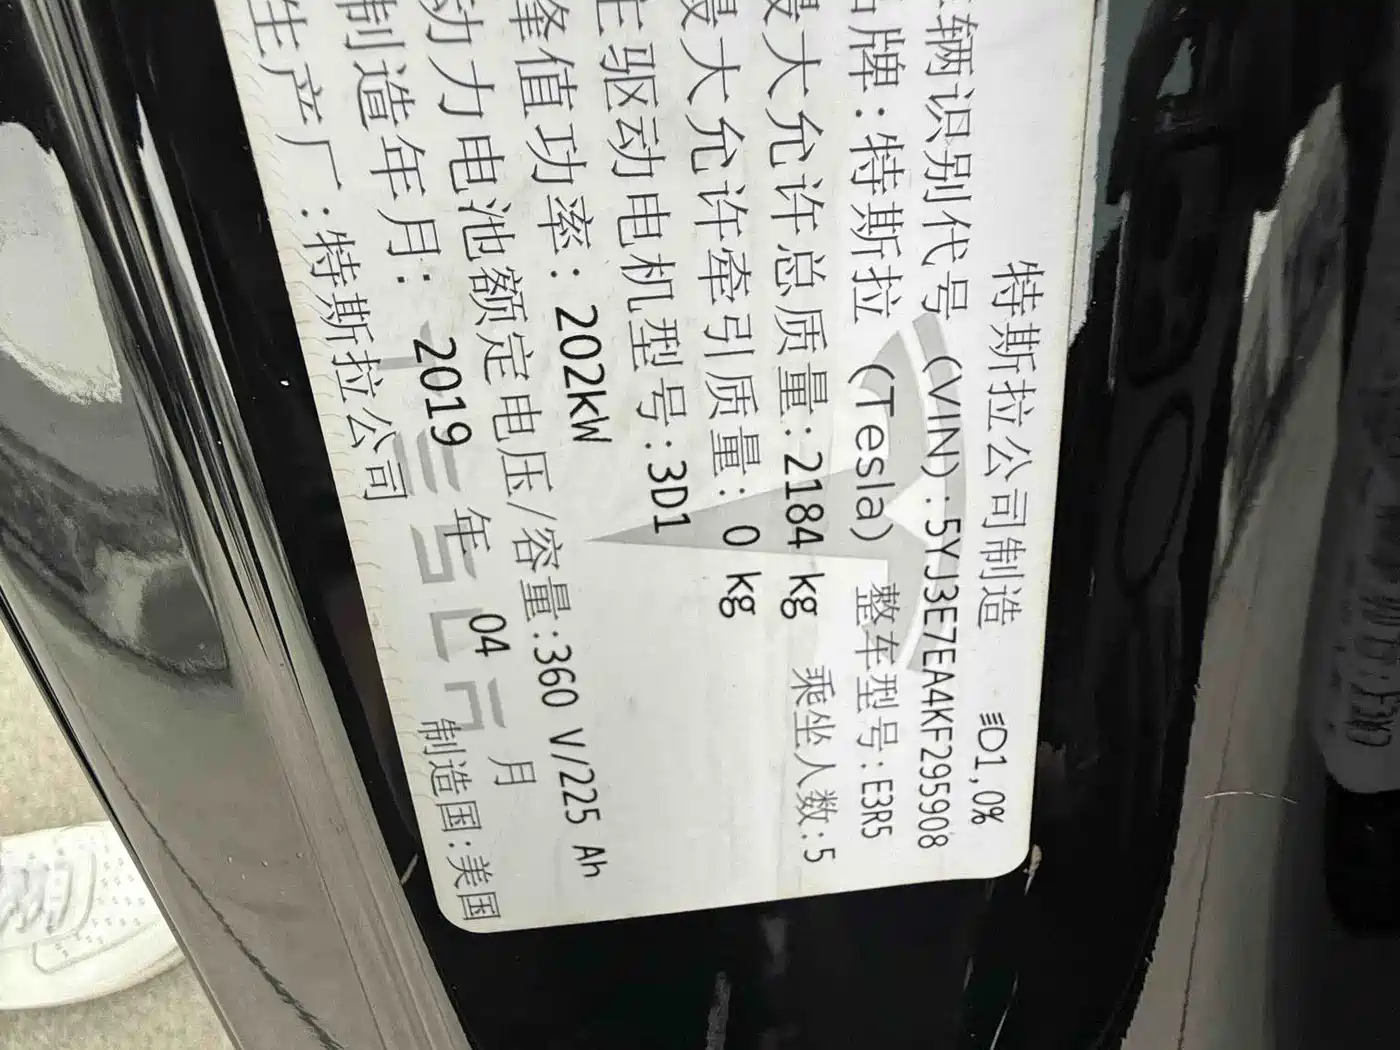 特斯拉公司制造 D1,0%
车辆识别代号 (VIN):5YJ3E7EA4KF295908
品牌:特斯拉 (Tesla) 整车型号:E3R5
最大允许总质量:2184 kg 乘坐人数:5
最大允许牵引质量: 0 kg
主驱动电机型号:3D1
峰值功率: 202kW
动力电池额定电压/容量:360 V/225 Ah
制造年月: 2019 年 04 月
生产厂:特斯拉公司 制造国:美国